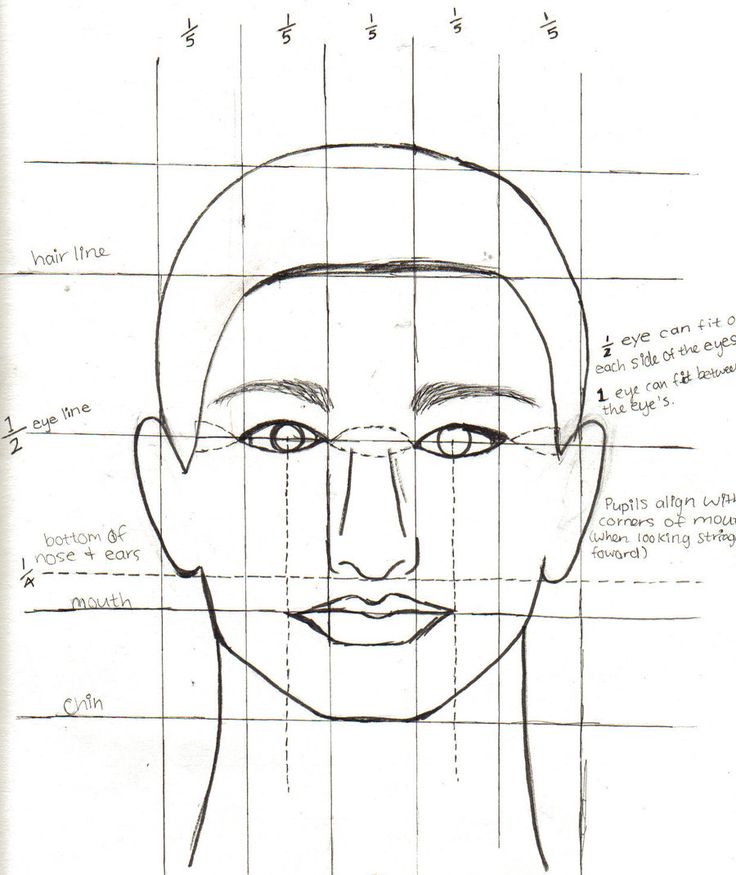 1/5 1/5 1/5 1/5 1/5
hair line
1/2 eye can fit o
each side of the eyes
1 eye can fit betwee
the eye's.
1/2 eye line
Pupils align with
corners of mou
(when looking straig
foward)
bottom of
nose + ears
1/4
mouth
Chin